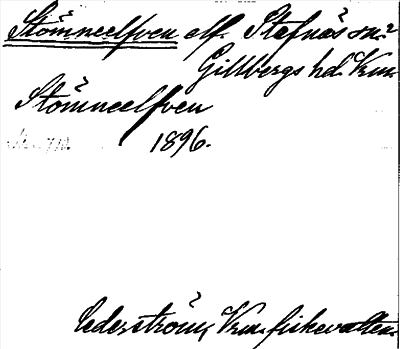 Stömneelfven elf. Stafnäs sn.
Gillbergs hd. Vrm.
Stömneelfven
1896.
Cederström, Vrm. fiskevatten.